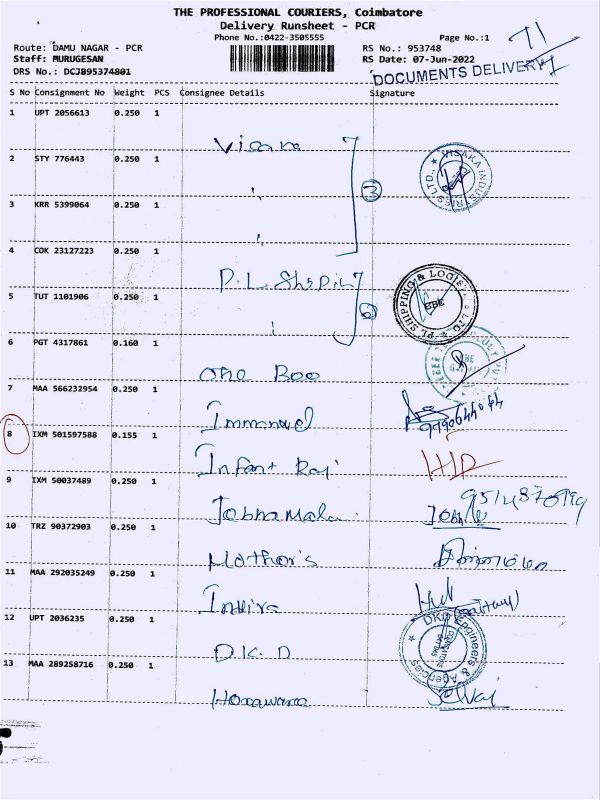 THE PROFESSIONAL COURIERS, Coimbatore
Delivery Runsheet - PCR
Phone No.:0422-3505555 Page No.:1
Route: DAMU NAGAR - PCR RS No.: 953748
Staff: MURUGESAN RS Date: 07-Jun-2022
DRS No.: DCJB95374801 DOCUMENTS DELIVERY
S No Consignment No Weight PCS Consignee Details Signature
1 UPT 2056613 0.250 1
Visaka
2 STY 776443 0.250 1
VISAKA INDUSTRIES LTD.,
3
3 KRR 5399064 0.250 1
4 COK 23127223 0.250 1
P.L. Shipin
PL SHIPPING & LOGISTICS LTD
CBE
5 TUT 1101906 0.250 1
2
6 PGT 4317861 0.160 1
One Boo
7 MAA 566232954 0.250 1
Immanuel
8 IXM 501597588 0.155 1
Infant Raj
9 IXM 50037489 0.250 1
Jebhamala
10 TRZ 90372903 0.250 1
Mother's
11 MAA 292035249 0.250 1
Indira
12 UPT 2036235 0.250 1
D.K.D
DKD Engineers & Agencies
13 MAA 289258716 0.250 1
Selvaj